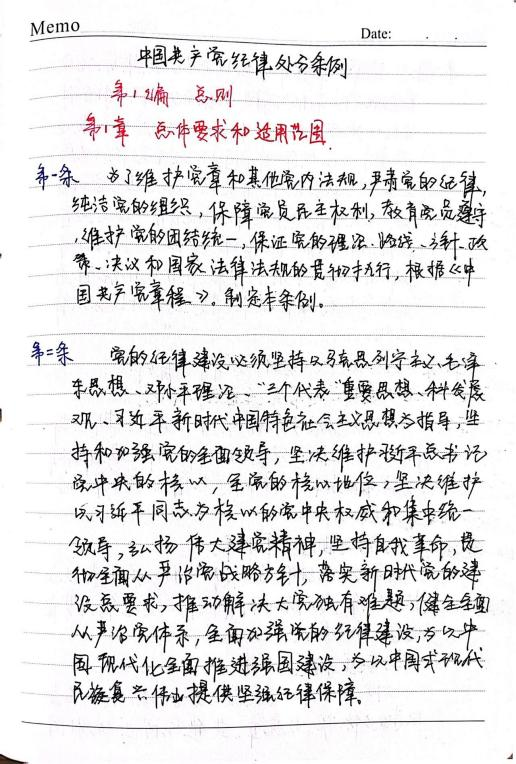 Memo
Date: . .
中国共产党纪律处分条例
第1编 总则
第1章 总体要求和适用范围
第一条 为了维护党章和其他党内法规,严肃党的纪律,
纯洁党的组织,保障党员民主权利,教育党员遵守
,维护党的团结统一,保证党的理论、路线、方针、政
策、决议和国家法律法规的贯彻执行,根据《中
国共产党章程》。制定本条例。
第二条 党的纪律建设必须坚持以马克思列宁主义、毛泽
东思想、邓小平理论、“三个代表”重要思想、科发展
观、习近平新时代中国特色社会主义思想为指导,坚
持和加强党的全面领导,坚决维护习近平总书记
党中央的核心,全党的核心地位,坚决维护
以习近平同志为核心的党中央权威和集中统一
领导,弘扬伟大建党精神,坚持自我革命,贯
彻全面从严治党战略方针,落实新时代党的建
设总要求,推动解决大党独有难题,健全全面
从严治党体系,全面加强党的纪律建设,为以中
国现代化全面推进强国建设,为以中国式现代
民族复兴伟业提供坚强纪律保障。